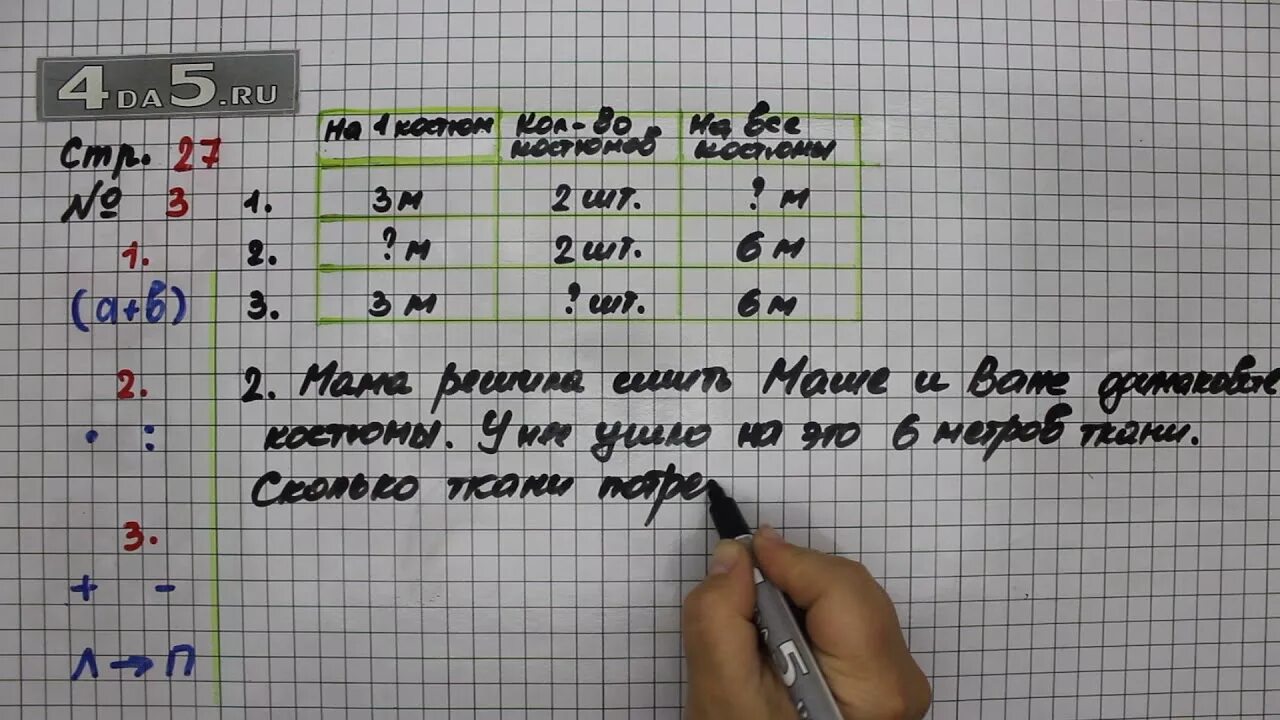 4DA5.RU
Стр. 27
№ 3
На 1 костюм Кол-во костюмов На все костюмы
1. 3 м 2 шт. ? м
2. ? м 2 шт. 6 м
3. 3 м ? шт. 6 м
1.
(а+в)
2.
· :
3.
+ -
Л → П
2. Мама решила сшить Маше и Ване одинаковые
костюмы. У неё ушло на это 6 метров ткани.
Сколько ткани потре
5